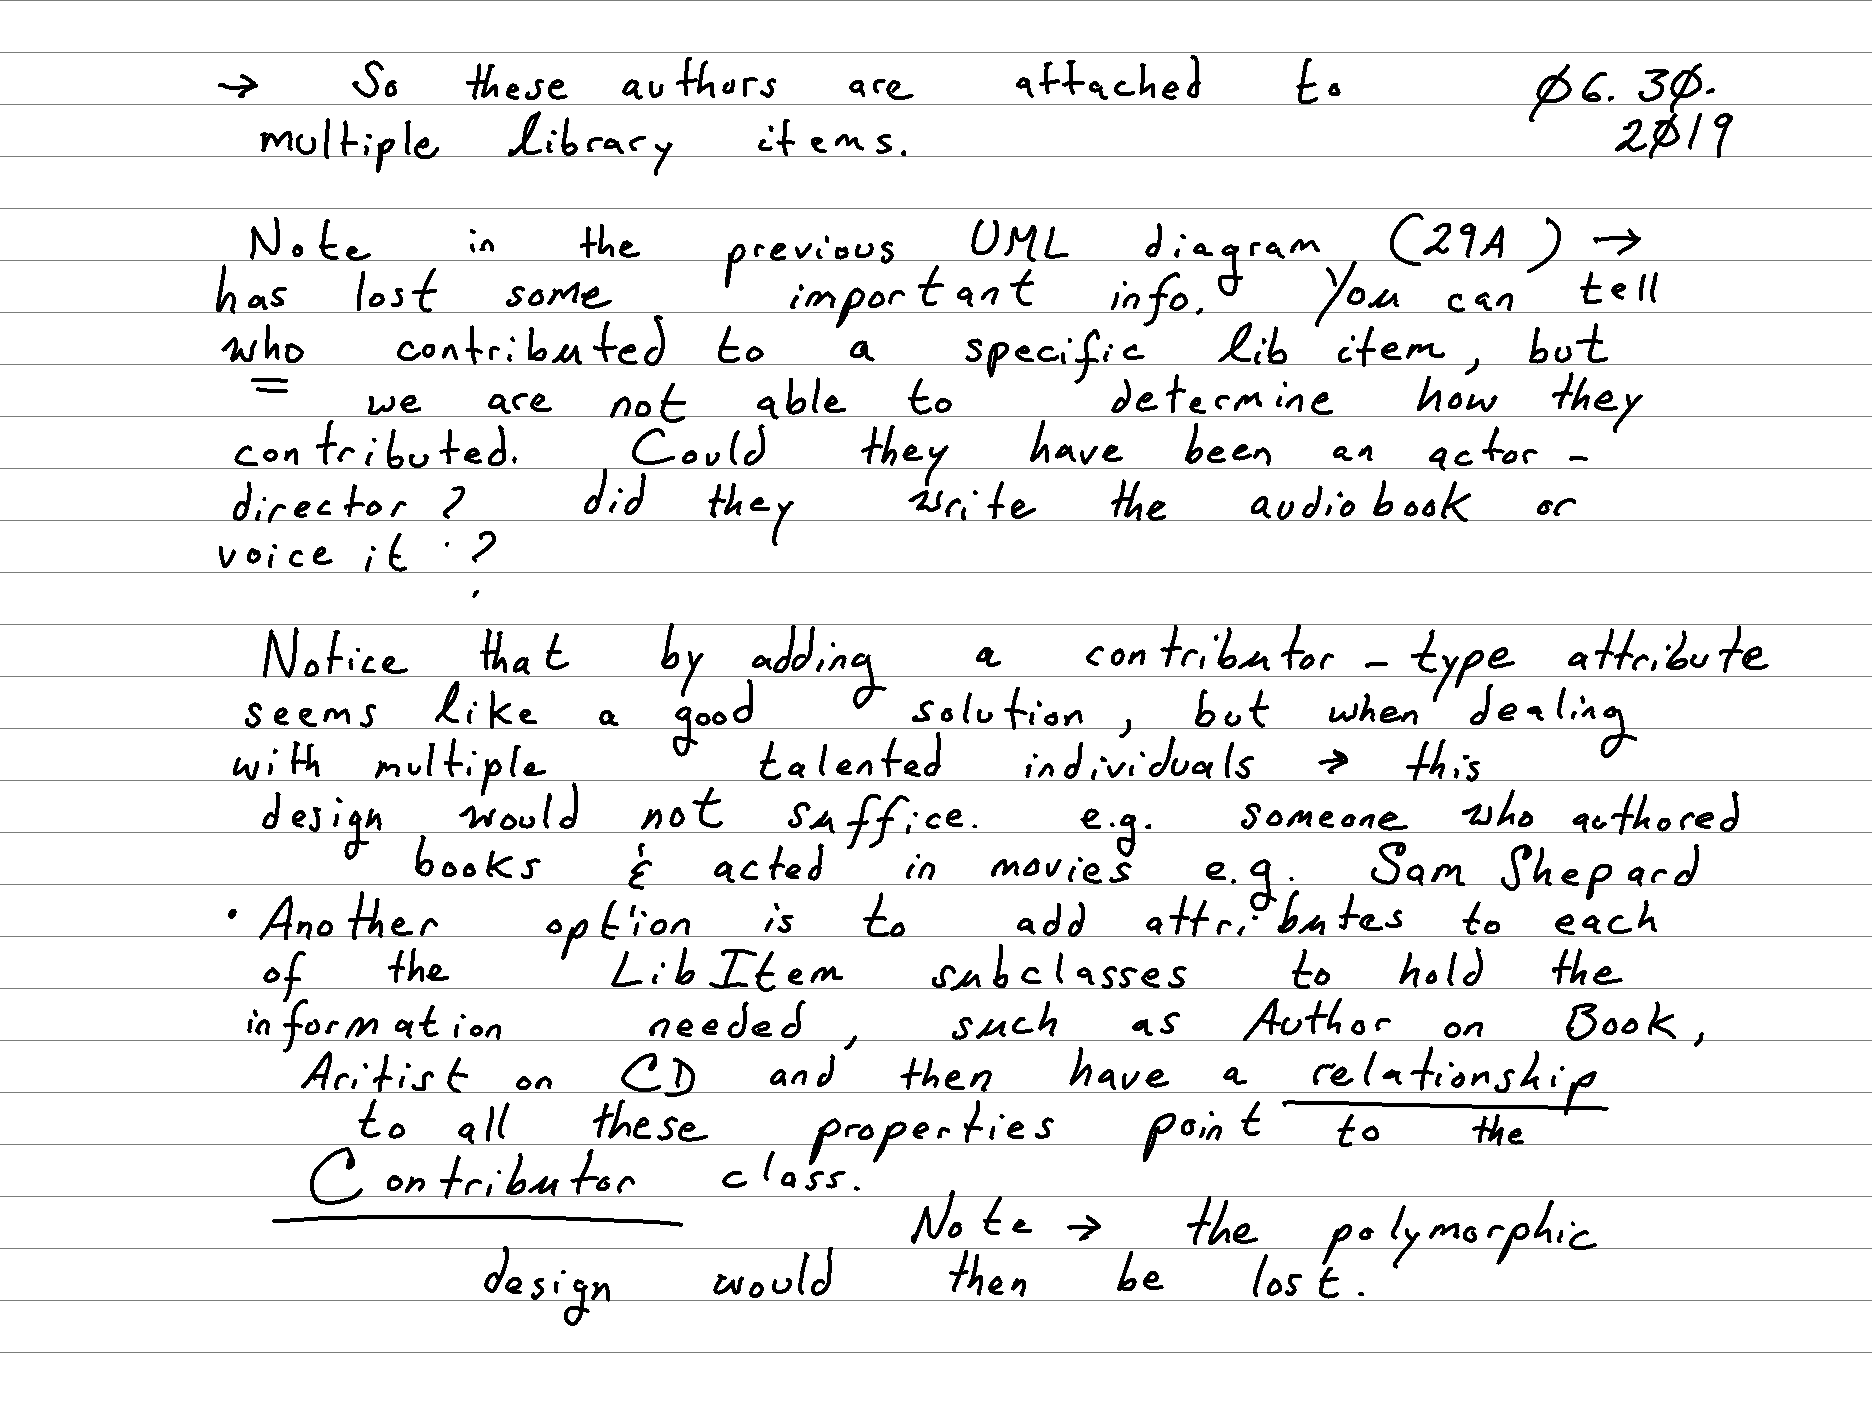 → So these authors are attached to Ø6. 3Ø.
multiple library items. 2Ø19
Note in the previous UML diagram (29A) →
has lost some important info. You can tell
who contributed to a specific lib item, but
we are not able to determine how they
contributed. Could they have been an actor -
director? did they write the audiobook or
voice it ?
Notice that by adding a contributor - type attribute
seems like a good solution, but when dealing
with multiple talented individuals → this
design would not suffice. e.g. someone who authored
books & acted in movies e.g. Sam Shepard
• Another option is to add attributes to each
of the LibItem subclasses to hold the
information needed, such as Author on Book,
Aritist on CD and then have a relationship
to all these properties point to the
Contributor class.
Note → the polymorphic
design would then be lost.